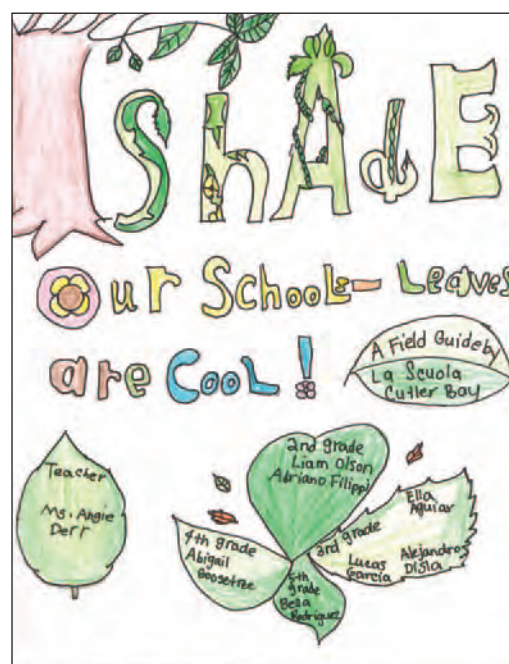 ShAdE
Our SchooL- Leaves
are CooL!
A Field Guide by
La Scuola
Cutler Bay
Teacher
Ms. Angie
Derr
2nd grade
Liam Olson
Adriano Filippi
3rd grade
Ella
Aguiar
Lucas
Garcia
Alejandros
Disla
4th grade
Abigail
Goosetree
5th grade
Bella
Rodriguez